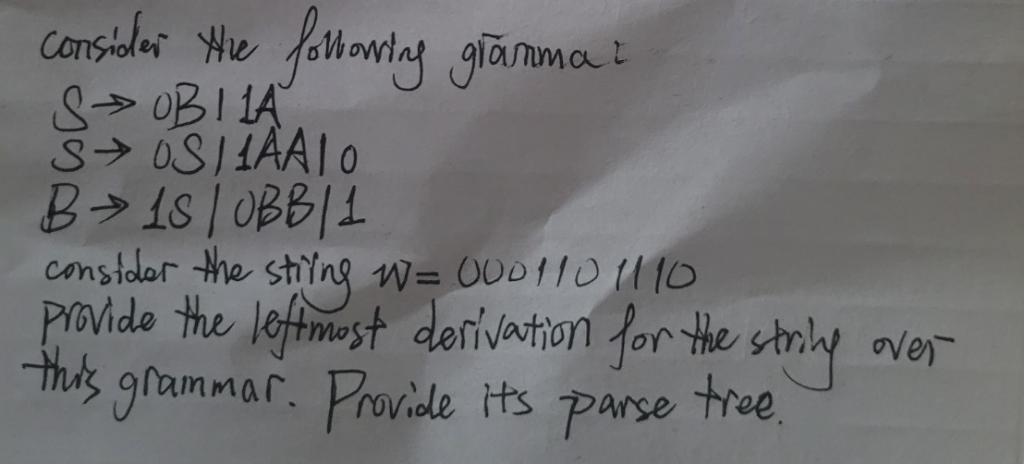 consider the following gramma:
S → 0B | 1A
S → 0S | 1AA | 0
B → 1S | 0BB | 1
consider the string w = 0001101110
provide the leftmost derivation for the string over
this grammar. Provide its parse tree.